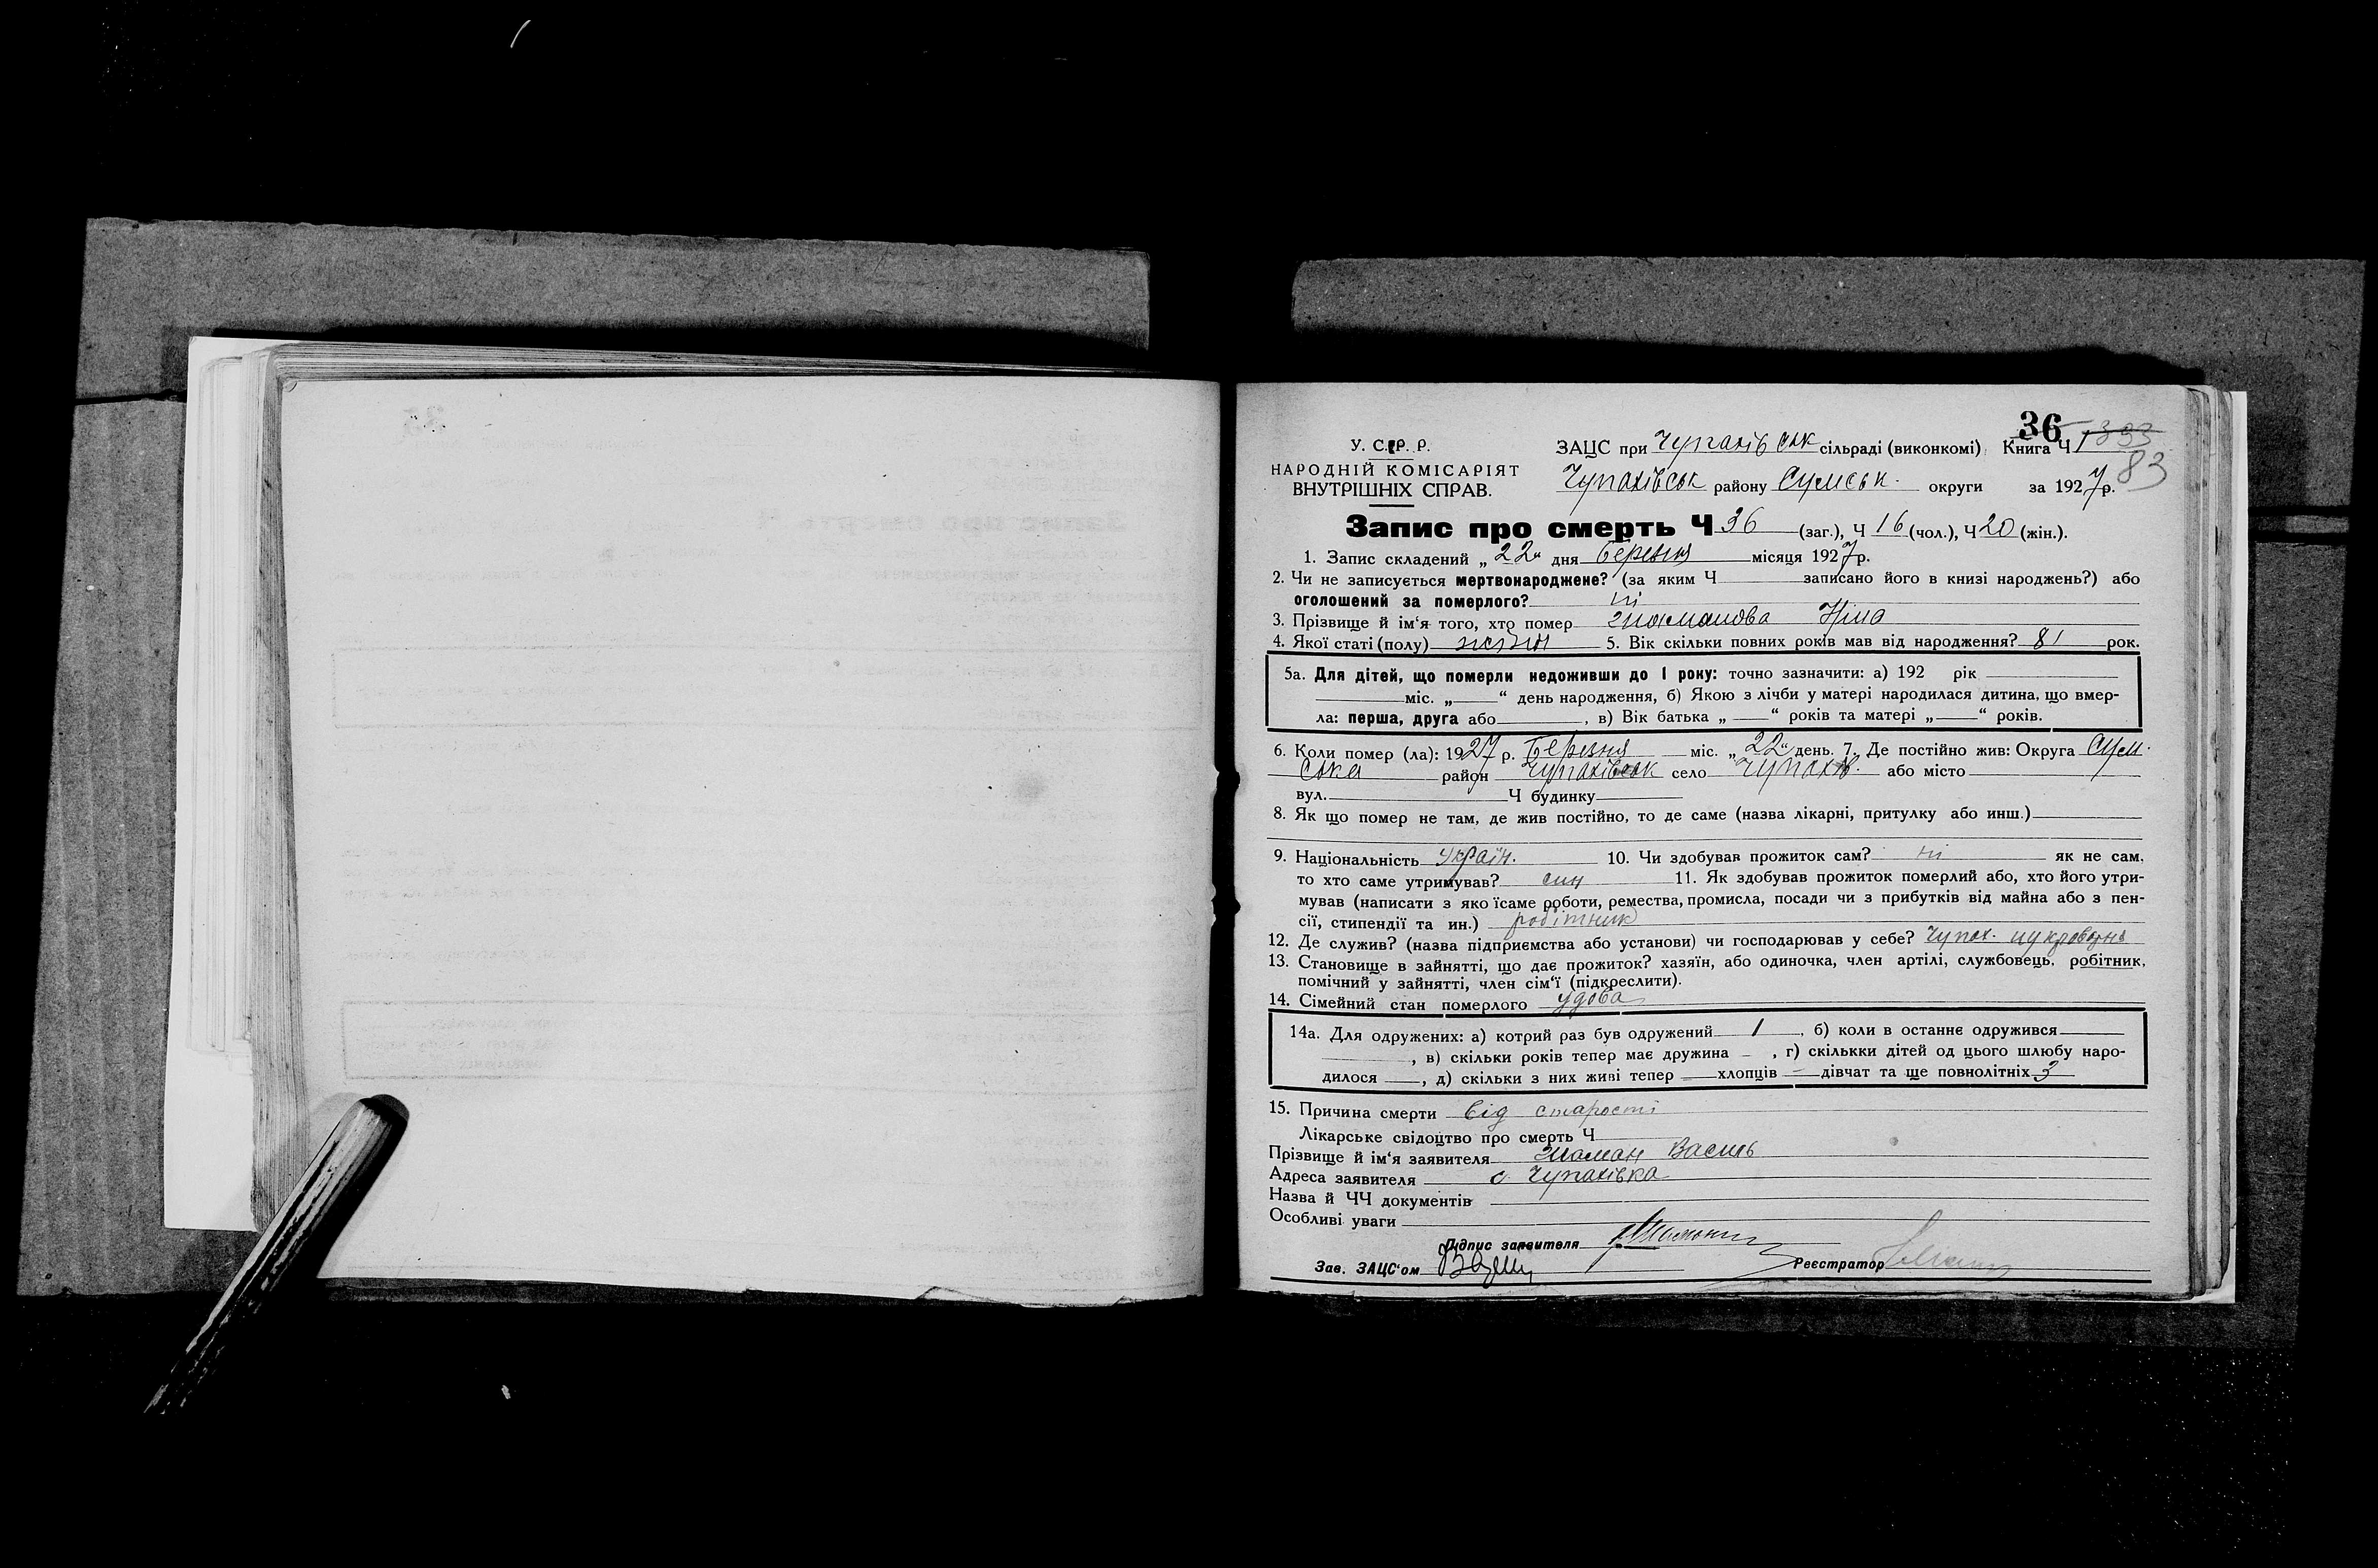 36
У. С. Р. Р.
ЗАЦС при Чупахівськ сільраді (виконкомі) Книга Ч 1333
83
НАРОДНІЙ КОМІСАРІЯТ
ВНУТРІШНІХ СПРАВ.
Чупахівськ району Сумськ. округи за 1927 р.
Запис про смерть Ч 36 (заг.), Ч 16 (чол.), Ч 20 (жін.).
1. Запис складений „ 22 “ дня березня місяця 1927 р.
2. Чи не записується мертвонароджене? (за яким Ч записано його в книзі народжень?) або
оголошений за померлого? ні
3. Прізвище й ім‘я того, хто помер
4. Якої статі (полу) 5. Вік скільки повних років мав від народження? 81 рок.
5а. Для дітей, що померли недоживши до 1 року: точно зазначити: а) 192 рік
міс. „ “ день народження, б) Якою з лічби у матері народилася дитина, що вмер-
ла: перша, друга або , в) Вік батька „ “ років та матері „ “ років.
6. Коли помер (ла): 1927 р. березня міс. „ 22 “ день. 7. Де постійно жив: Округа Сум-
ська район Чупахівськ село Чупахів. або місто
вул. Ч будинку
8. Як що помер не там, де жив постійно, то де саме (назва лікарні, притулку або инш.)
9. Національність україн. 10. Чи здобував прожиток сам? ні як не сам,
то хто саме утримував? син 11. Як здобував прожиток померлий або, хто його утри-
мував (написати з яко їсаме роботи, ремества, промисла, посади чи з прибутків від майна або з пен-
сії, стипендії та ин.) робітник
12. Де служив? (назва підприємства або установи) чи господарював у себе? Чупах. цукроварня
13. Становище в зайнятті, що дає прожиток? хазяїн, або одиночка, член артілі, службовець, робітник,
помічний у зайнятті, член сім‘ї (підкреслити).
14. Сімейний стан померлого удова
14а. Для одружених: а) котрий раз був одружений 1 , б) коли в останнє одружився
, в) скільки років тепер має дружина – , г) скількки дітей од цього шлюбу наро-
дилося , д) скільки з них живі тепер хлопців дівчат та ще повнолітніх 3
15. Причина смерти від старости
Лікарське свідоцтво про смерть Ч
Прізвище й ім‘я заявителя Василь
Адреса заявителя с. Чупахівка
Назва й ЧЧ документів
Особливі уваги
Підпис заявителя
Зав. ЗАЦС‘ом Реєстратор